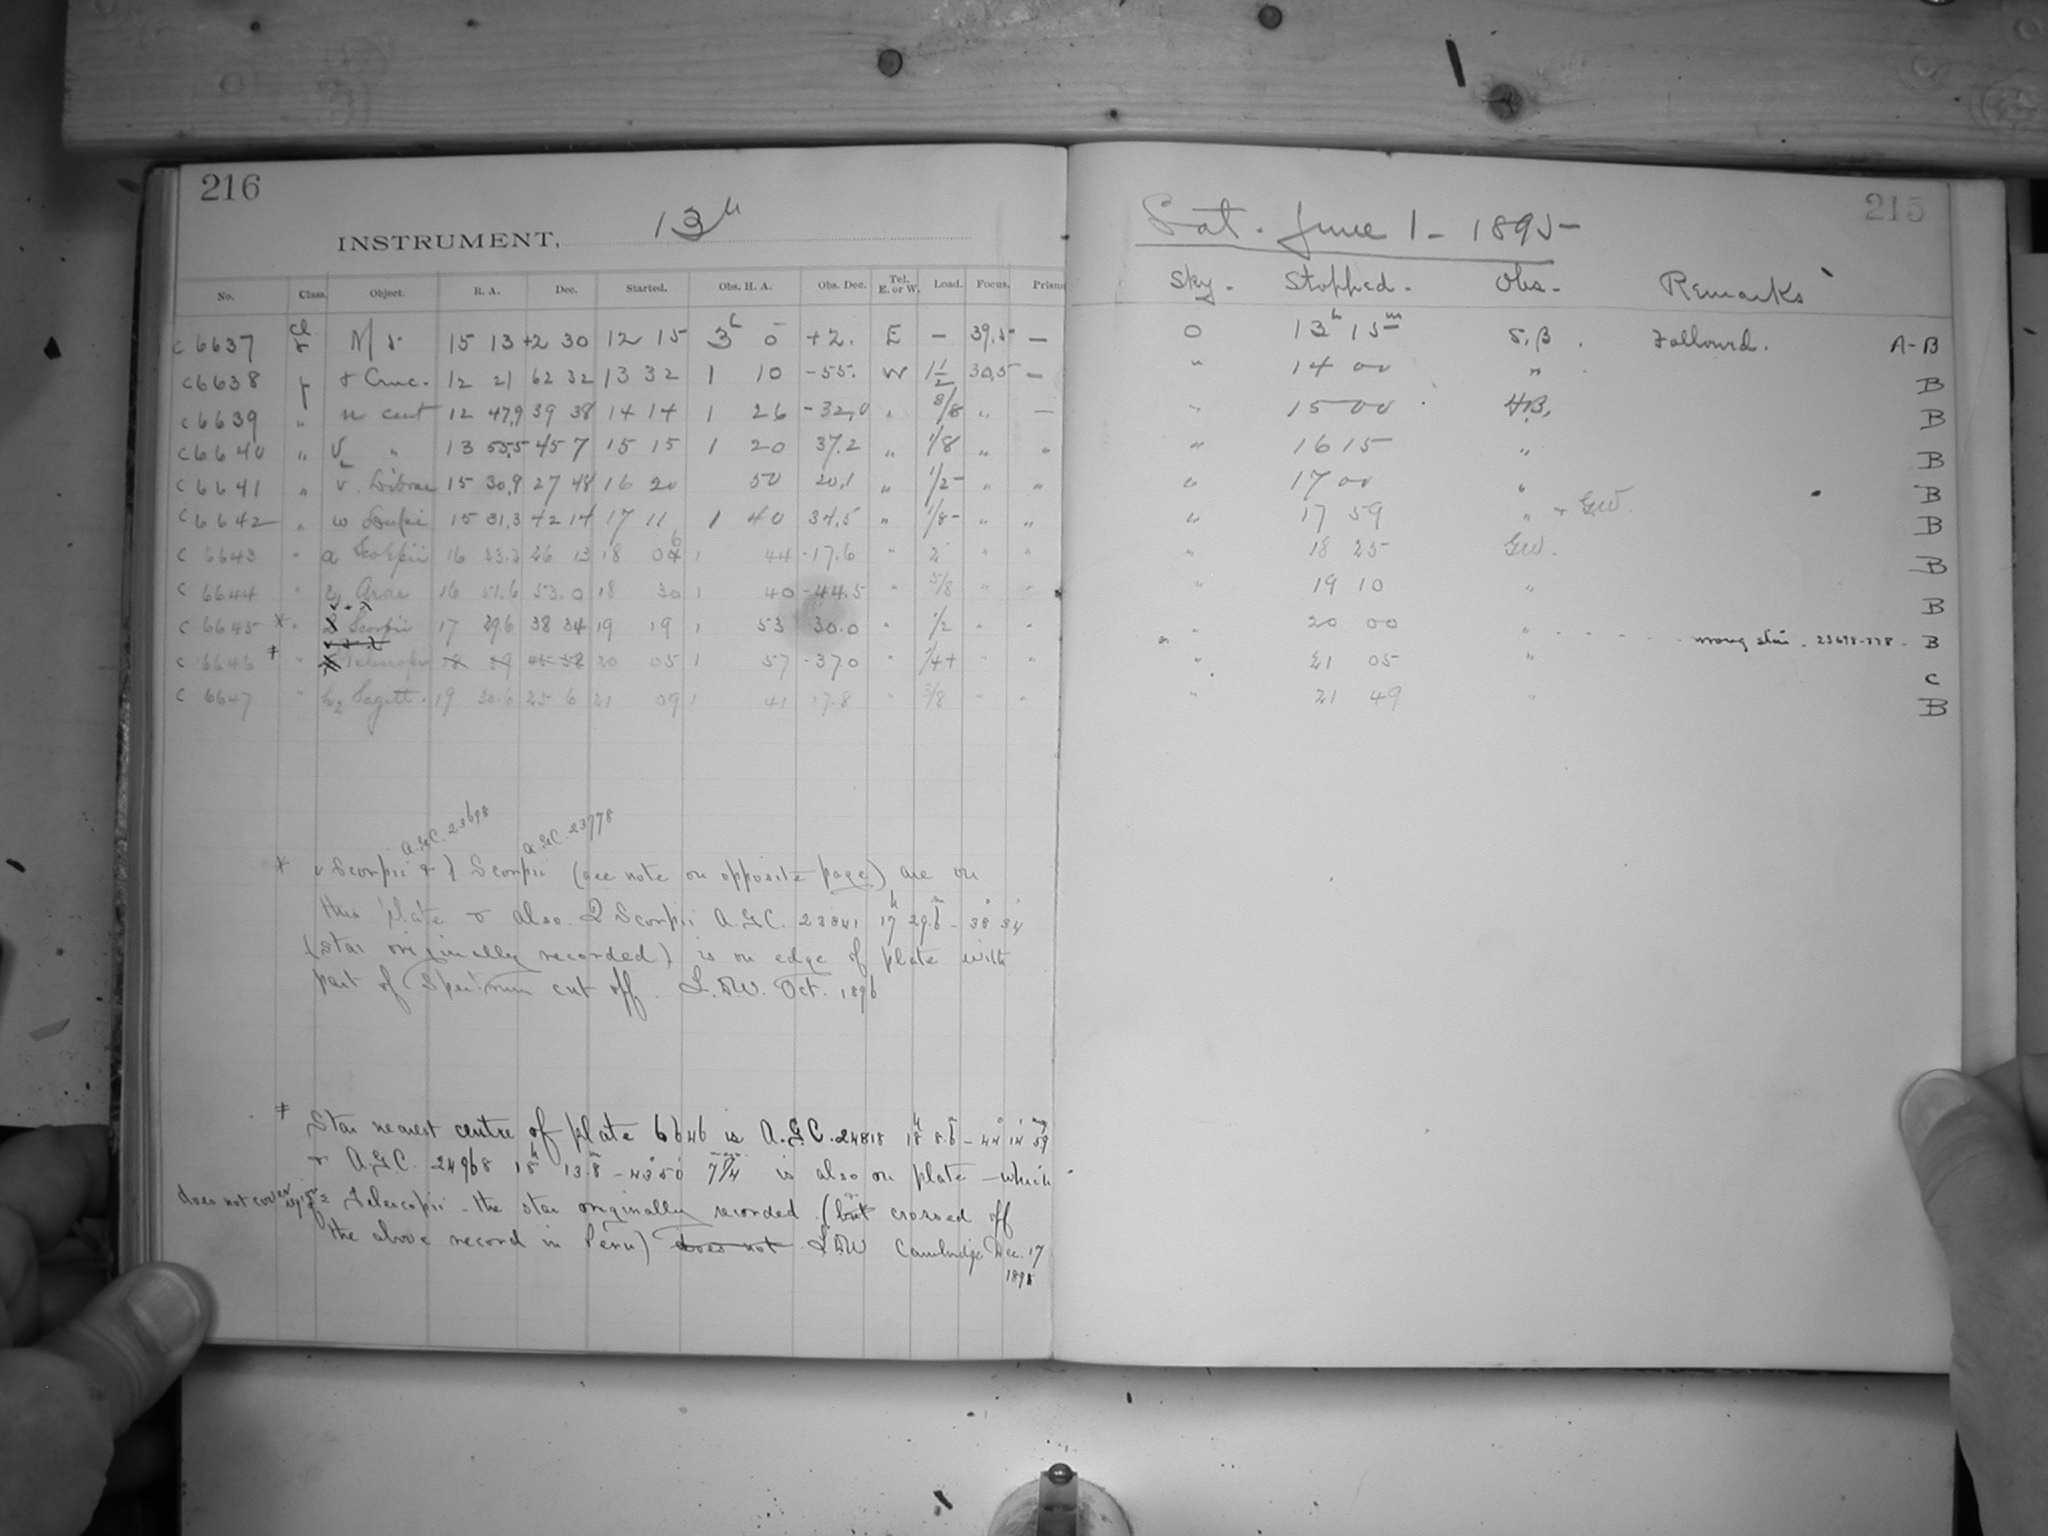 216
INSTRUMENT, 13"
No. Class. Object. R. A. Dec. Started. Obs. H. A. Obs. Dec. Tel. E. or W. Load. Focus. Prism
C 6637 Cl M 5 15 13 +2 30 12 15 3h 0 +2. E — 39.5 —
C 6638 Cruc. 12 21 62 32 13 32 1 10 -55. W 1 1/2 30.5 —
C 6639 " n cent 12 47.9 39 38 14 14 1 26 -32.0 " 8/8 " —
C 6640 " " 13 55.5 45 7 15 15 1 20 37.2 " 1/8 " "
C 6641 " Librae 15 30.9 27 48 16 20 50 20.1 " 1/2 " "
C 6642 " w Lupi 15 31.3 42 14 17 11 1 40 34.5 " 1/8 " "
C 6643 " a Scorpii 16 23.2 26 13 18 06 1 44 -17.6 " 2 " "
C 6644 " Arae 16 51.6 53.0 18 30 1 40 -44.5 " 5/8 " "
C 6645 * " Scorpii 17 29.6 38 34 19 19 1 53 30.0 " 1/2 " "
C 6646 ‡ " Telescopi 18 59 45 58 20 05 1 57 -37.0 " 1/4+ " "
C 6647 " h2 Sagitt. 19 30.6 25 6 21 09 1 41 17.8 " 3/8 " "
A.G.C. 23698 A.G.C. 23778
* υ Scorpii & λ Scorpii (see note on opposite page) are on
this plate & also Q Scorpii A.G.C. 23841 17h 29.6m - 38° 34'
(star originally recorded) is on edge of plate with
part of Spectrum cut off. L.D.W. Oct. 1896
‡ Star nearest centre of plate 6646 is A.G.C. 24818 18h 8.6m - 44° 14'
& A.G.C. 24968 18h 13.8m - 43° 50' 7 1/4 is also on plate - which
does not cover Telescopii - the star originally recorded (but crossed off
the above record in Peru) does not L D W Cambridge Dec. 17
1898
215
Sat. June 1 - 1895
Sky. Stopped. Obs. Remarks
0 13h 15m S.B. Followed. A-B
" 14 00 " B
" 15 00 H.B. B
" 16 15 " B
" 17 00 " B
" 17 59 " + G.W. B
" 18 25 G.W. B
" 19 10 " B
" 20 00 " wrong star - 23698-778 - B
" 21 05 " C
" 21 49 " B